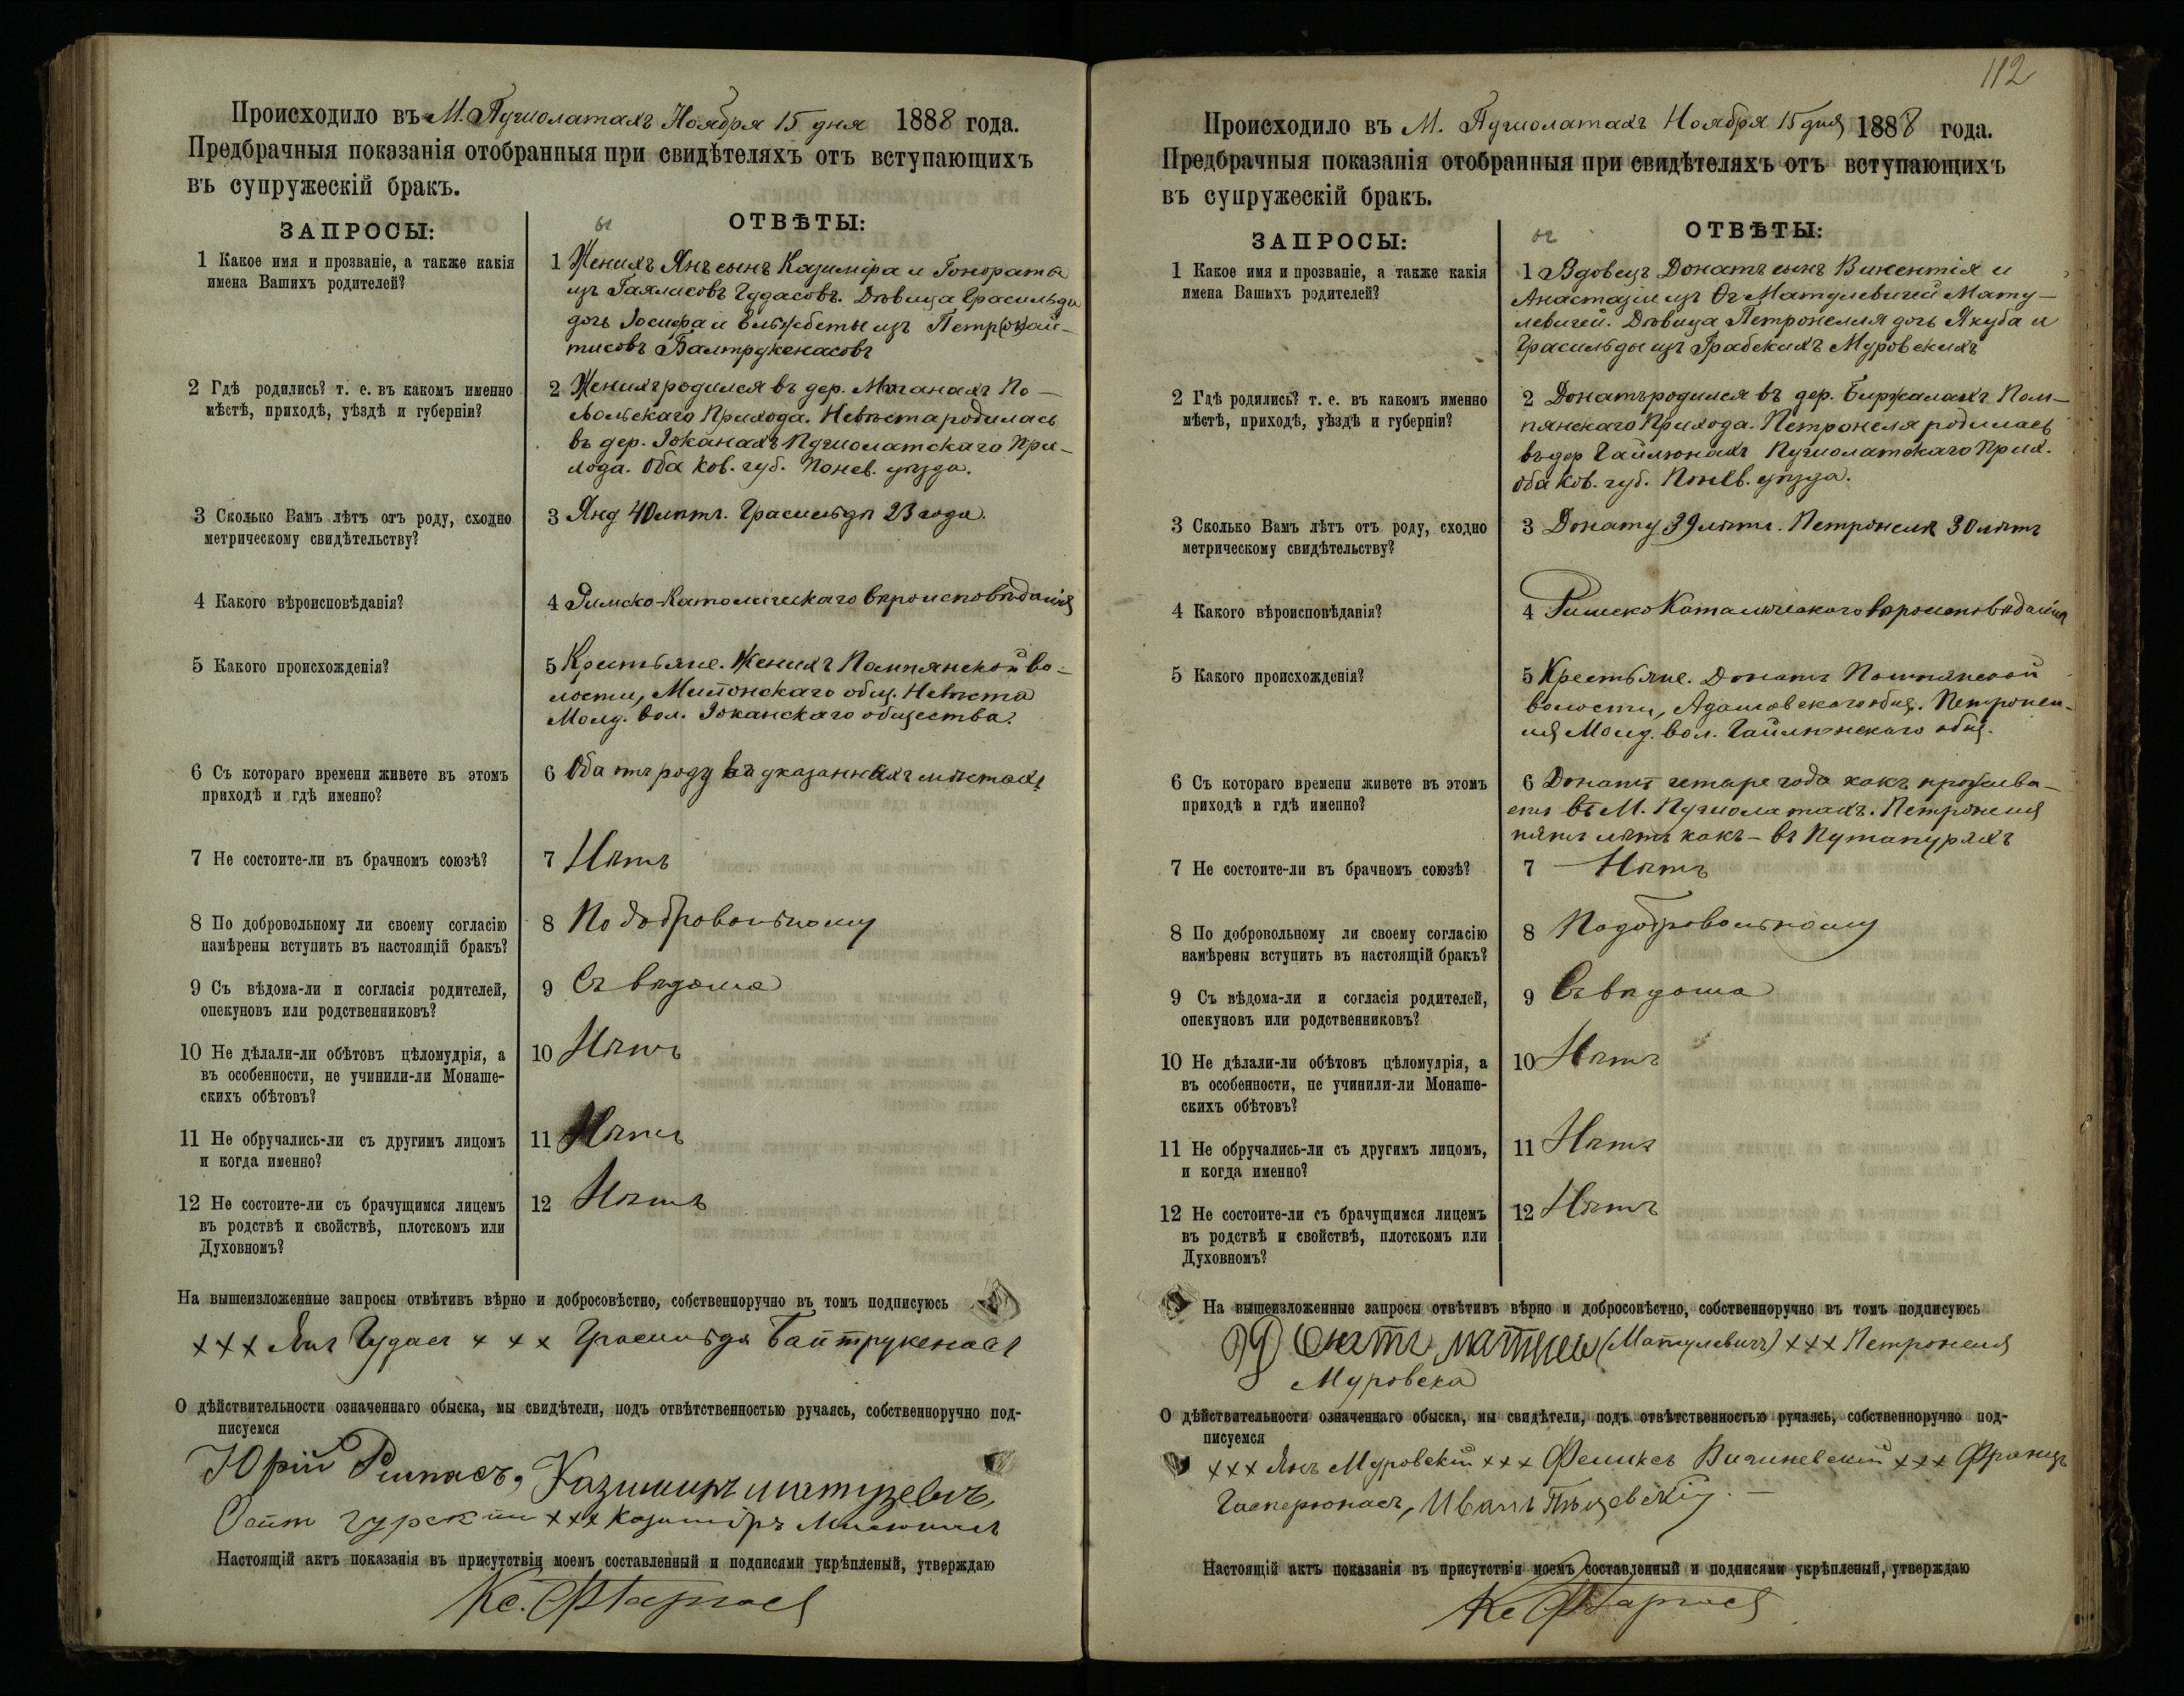 Происходило въ М. Пушолатахъ Ноября 15 дня 1888 года.
Предбрачныя показанія отобранныя при свидѣтеляхъ отъ вступающихъ
въ супружескій бракъ.
ЗАПРОСЫ:
ОТВѢТЫ:
1 Какое имя и прозваніе, а также какія
имена Вашихъ родителей?
1 Женихъ Янъ сынъ Казиміра и Гонораты
изъ Гаялисовъ Чудасовъ. Дѣвица Грасильда
дочь Іосифа и Ельжбеты изъ
тисовъ Балтрукенасовъ
2 Гдѣ родились? т. е. въ какомъ именно
мѣстѣ, приходѣ, уѣздѣ и губерніи?
2 Женихъ родился въ дер. По-
Прихода. Невѣста родилась
въ дер. Іоканахъ Пушолатскаго При-
хода. Оба Ков. губ. Понев. уѣзда.
3 Сколько Вамъ лѣтъ отъ роду, сходно
метрическому свидѣтельству?
3 Яну 40 лѣтъ. Грасильдѣ 23 года.
4 Какого вѣроисповѣданія?
4 Римско-Католическаго вѣроисповѣданія
5 Какого происхожденія?
5 Крестьяне. Женихъ Помпянской во-
лости, общ. Невѣста
Вол. Іоканскаго общества.
6 Съ котораго времени живете въ этомъ
приходѣ и гдѣ именно?
6 Оба отъ роду въ указанныхъ мѣстахъ
7 Не состоите-ли въ брачномъ союзѣ?
7 Нѣтъ
8 По добровольному ли своему согласію
намѣрены вступить въ настоящій бракъ?
8 По добровольному
9 Съ вѣдома-ли и согласія родителей,
опекуновъ или родственниковъ?
9 Съ вѣдома
10 Не дѣлали-ли обѣтовъ цѣломудрія, а
въ особенности, не учинили-ли Монаше-
скихъ обѣтовъ?
10 Нѣтъ
11 Не обручались-ли съ другимъ лицомъ
и когда именно?
11 Нѣтъ
12 Не состоите-ли съ брачущимся лицемъ
въ родствѣ и свойствѣ, плотскомъ или
Духовномъ?
12 Нѣтъ
На вышеизложенные запросы отвѣтивъ вѣрно и добросовѣстно, собственноручно въ томъ подписуюсь
+++ Янъ Чудасъ +++ Грасильда Балтрукенасъ
О дѣйствительности означеннаго обыска, мы свидѣтели, подъ отвѣтственностью ручаясь, собственноручно под-
писуемся
Юрій Римкасъ, Казимиръ
+++ Казиміръ
Настоящій актъ показанія въ присутствіи моемъ составленный и подписями укрѣпленый, утверждаю
Кс.
112
Происходило въ М. Пушолатахъ Ноября 15 дня 1888 года.
Предбрачныя показанія отобранныя при свидѣтеляхъ отъ вступающихъ
въ супружескій бракъ.
ЗАПРОСЫ:
ОТВѢТЫ:
1 Какое имя и прозваніе, а также какія
имена Вашихъ родителей?
1 Вдовецъ Донатъ сынъ Викентія и
Анастазіи изъ Матулевичей Мату-
левичей. Дѣвица Петронелля дочь Якуба и
Грасильды изъ Грабскихъ Муровскихъ
2 Гдѣ родились? т. е. въ какомъ именно
мѣстѣ, приходѣ, уѣздѣ и губерніи?
2 Донатъ родился въ дер. Биржалахъ Пом-
пянскаго Прихода. Петронеля родилась
въ дер Гайлюнахъ Пушолатскаго Прих.
оба Ков. губ. Понев. уѣзда.
3 Сколько Вамъ лѣтъ отъ роду, сходно
метрическому свидѣтельству?
3 Донату 39 лѣтъ. Петронели 30 лѣтъ
4 Какого вѣроисповѣданія?
4 Римско Католическаго вѣроисповѣданія
5 Какого происхожденія?
5 Крестьяне. Донатъ Помпянской
волости, Адамовскаго общ. Петронел-
ля вол. Гайлюнскаго общ.
6 Съ котораго времени живете въ этомъ
приходѣ и гдѣ именно?
6 Донатъ четыре года какъ прожива-
етъ въ М. Пушолатахъ. Петронеля
пять лѣтъ какъ - въ
7 Не состоите-ли въ брачномъ союзѣ?
7 Нѣтъ
8 По добровольному ли своему согласію
намѣрены вступить въ настоящій бракъ?
8 По добровольному
9 Съ вѣдома-ли и согласія родителей,
опекуновъ или родственниковъ?
9 Съ вѣдома
10 Не дѣлали-ли обѣтовъ цѣломудрія, а
въ особенности, не учинили-ли Монаше-
скихъ обѣтовъ?
10 Нѣтъ
11 Не обручались-ли съ другимъ лицомъ,
и когда именно?
11 Нѣтъ
12 Не состоите-ли съ брачущимся лицемъ
въ родствѣ и свойствѣ, плотскомъ или
Духовномъ?
12 Нѣтъ
На вышеизложенные запросы отвѣтивъ вѣрно и добросовѣстно, собственноручно въ томъ подписуюсь
Донатъ (Матулевичъ) +++ Петронеля
Муровска
О дѣйствительности означеннаго обыска, мы свидѣтели, подъ отвѣтственностью ручаясь, собственноручно под-
писуемся
+++ Янъ Муровскій +++ Феликсъ Вишневскій +++ Францъ
Гасперюнасъ, Иванъ
Настоящій актъ показанія въ присутствіи моемъ составленный и подписями укрѣпленый, утверждаю
Кс